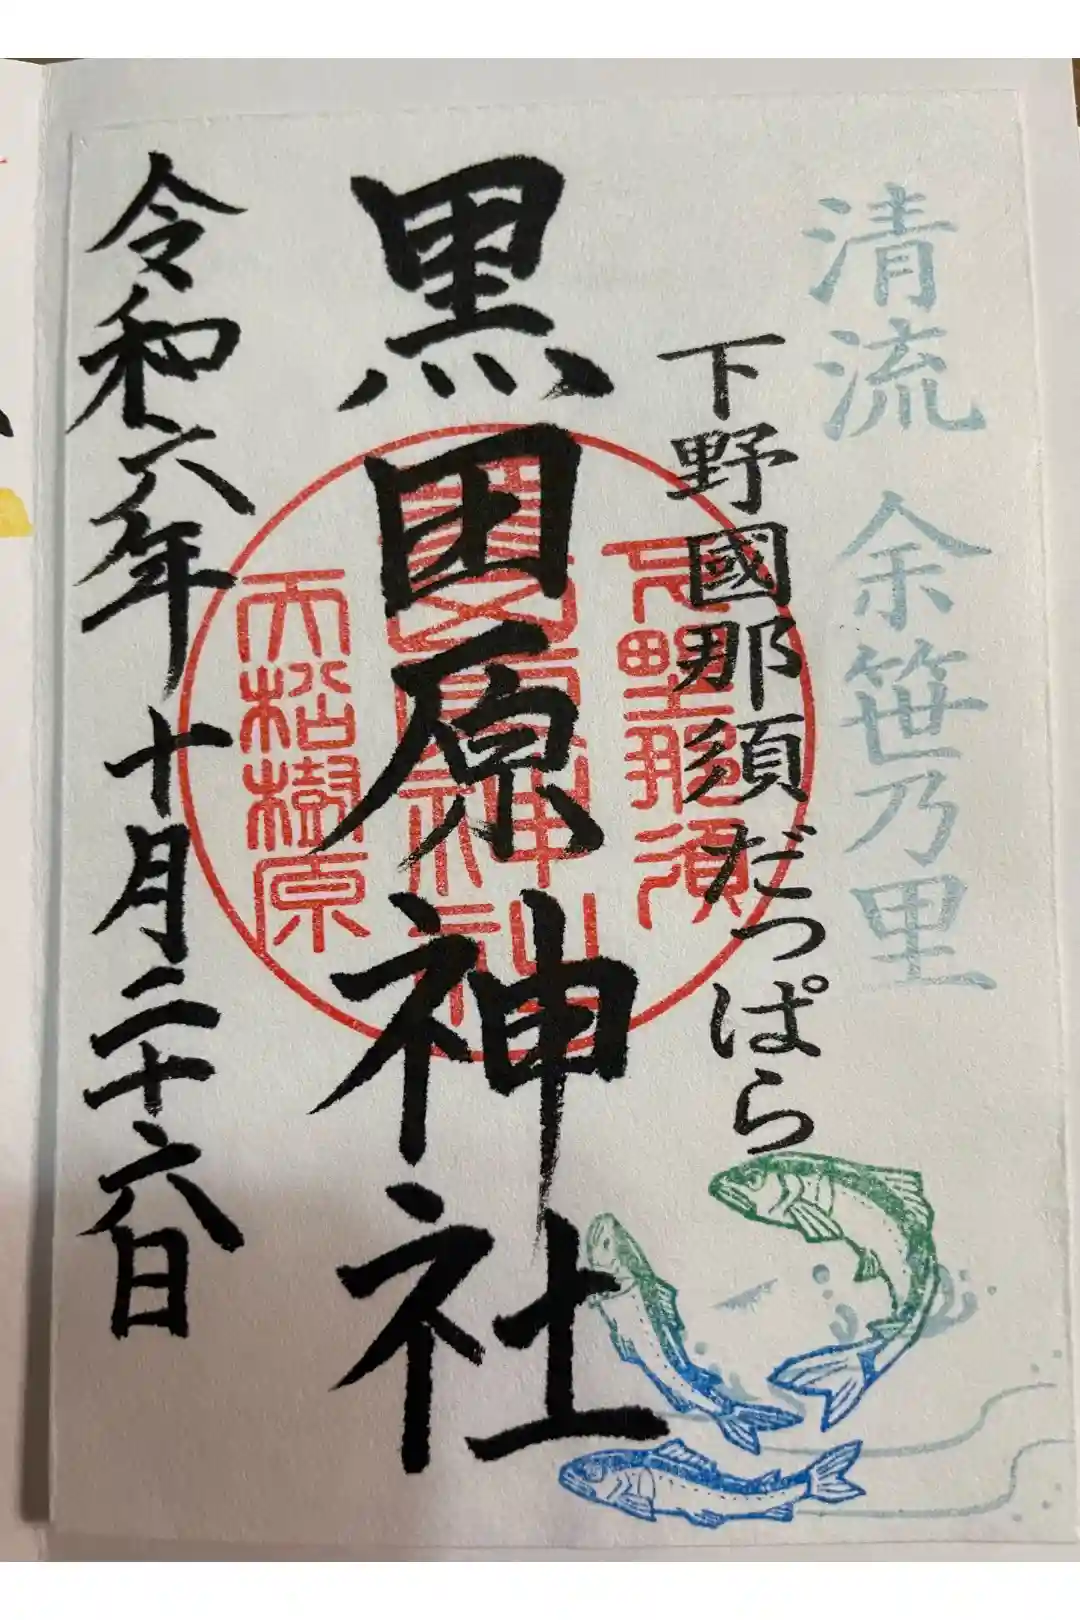 清流 余笹乃里
下野國那須だっぱら
黒田原神社
令和六年十月二十六日
下野那須
黒田原神社
大松樹原